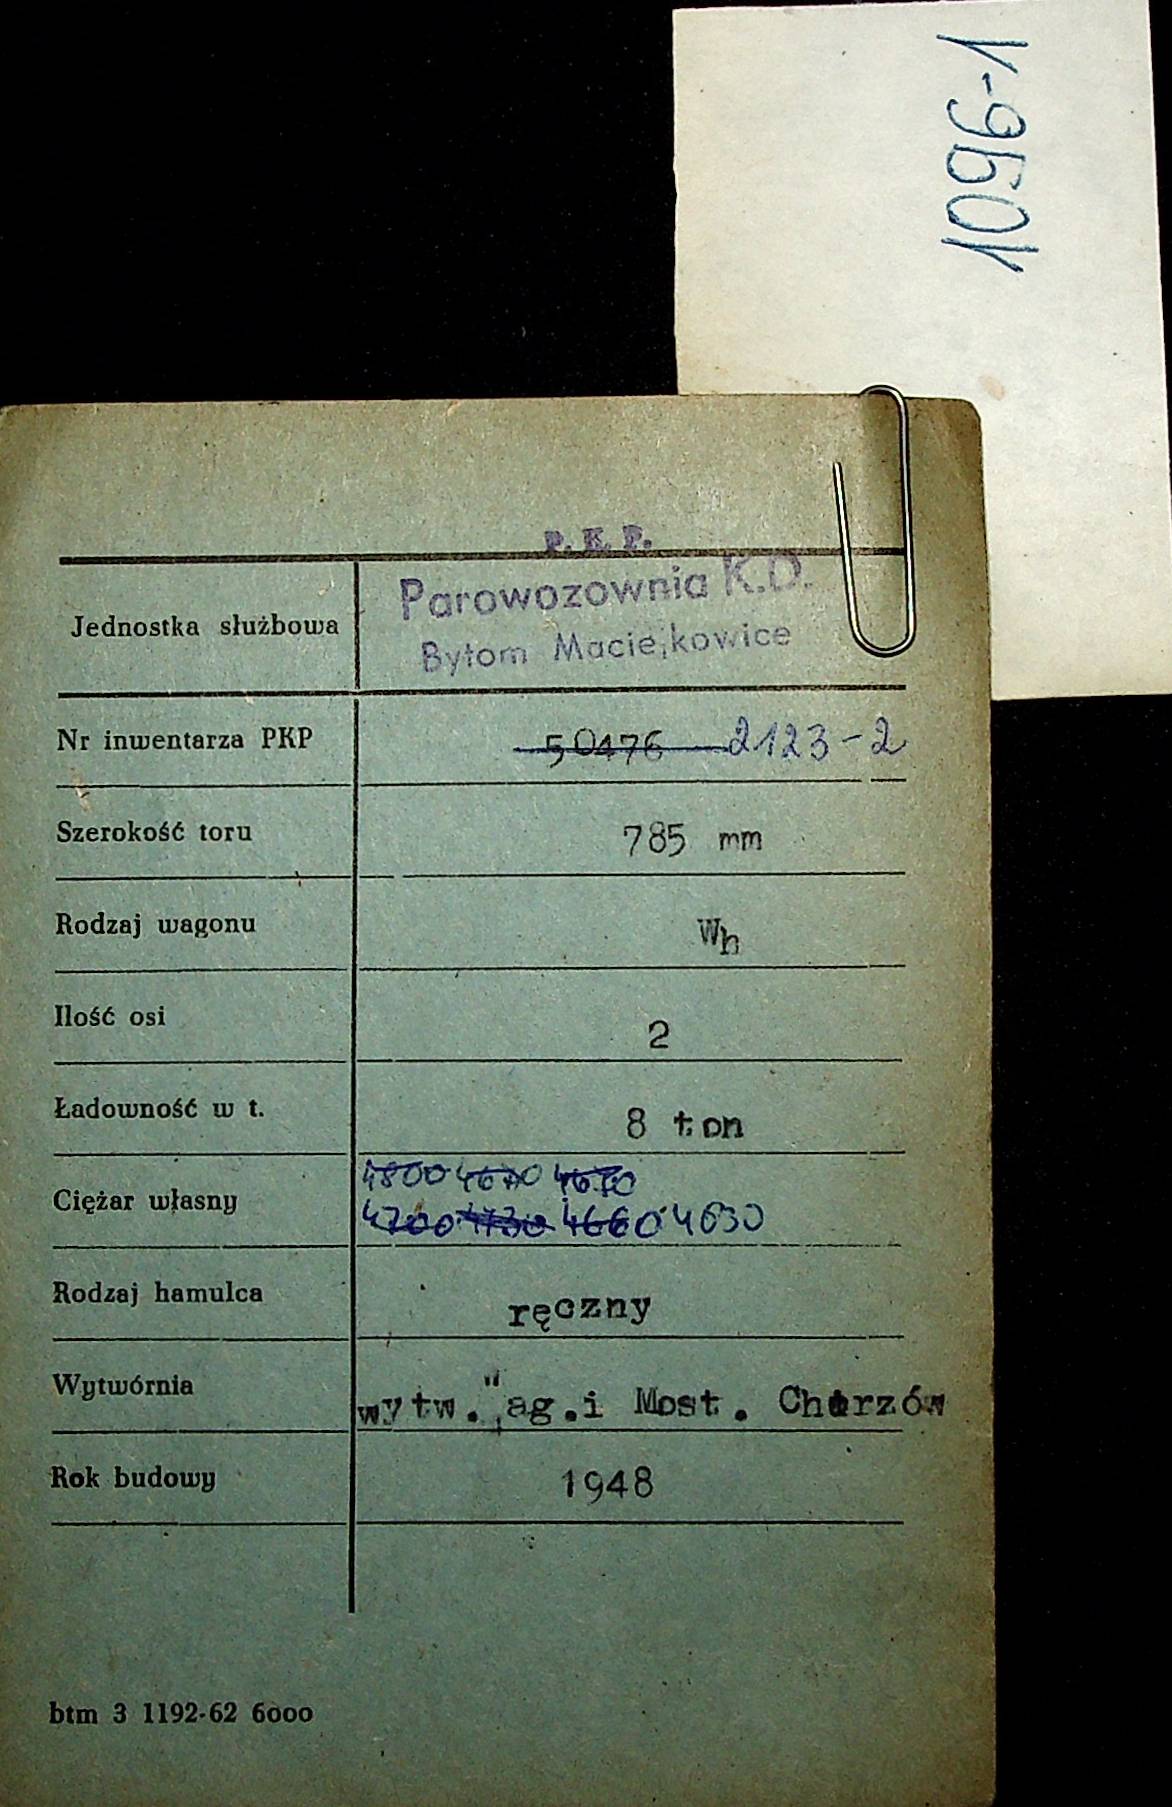 P. K. P.
Parowozownia K.D.
Bytom Maciejkowice
Jednostka służbowa
Nr inwentarza PKP 50476 2123-2
Szerokość toru 785 mm
Rodzaj wagonu Wh
Ilość osi 2
Ładowność w t. 8 ton
4800 4670 4670
Ciężar własny
4700 4730 4660 4630
Rodzaj hamulca ręczny
Wytwórnia wytw."ag.i Most. Chorzów
Rok budowy 1948
btm 3 1192-62 6000